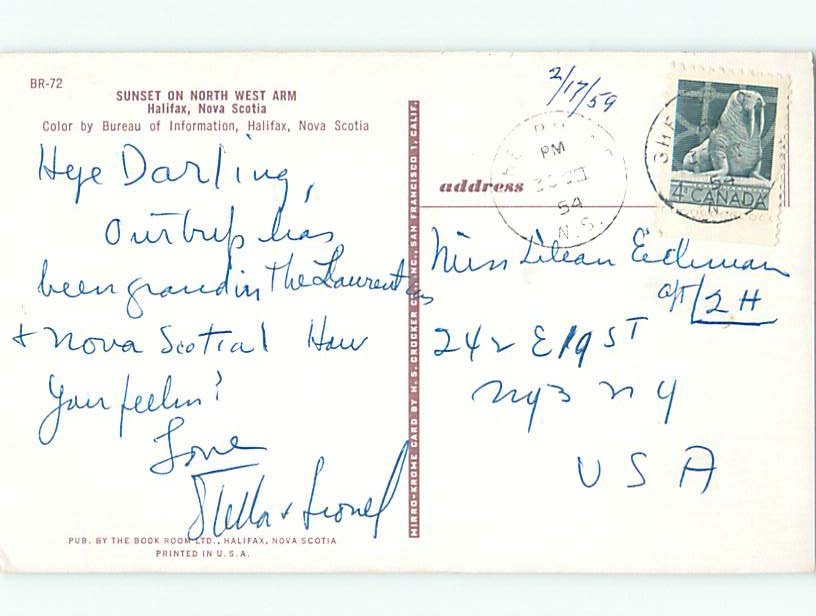 BR-72
SUNSET ON NORTH WEST ARM
Halifax, Nova Scotia
Color by Bureau of Information, Halifax, Nova Scotia
Heye Darling,
Our trip has
been grand in The Laurentians
+ Nova Scotia! How
Your feelin?
Love
Stella + Lionel
PUB. BY THE BOOK ROOM LTD., HALIFAX, NOVA SCOTIA
PRINTED IN U.S.A.
MIRRO-KROME CARD BY H. S. CROCKER CO., INC., SAN FRANCISCO 1, CALIF.
2/17/59
PM
54
N.S.
SHE
54
N
4¢ CANADA
address
Miss Lilean Edelman
apt 2H
242 E 19 ST
NY3 NY
USA